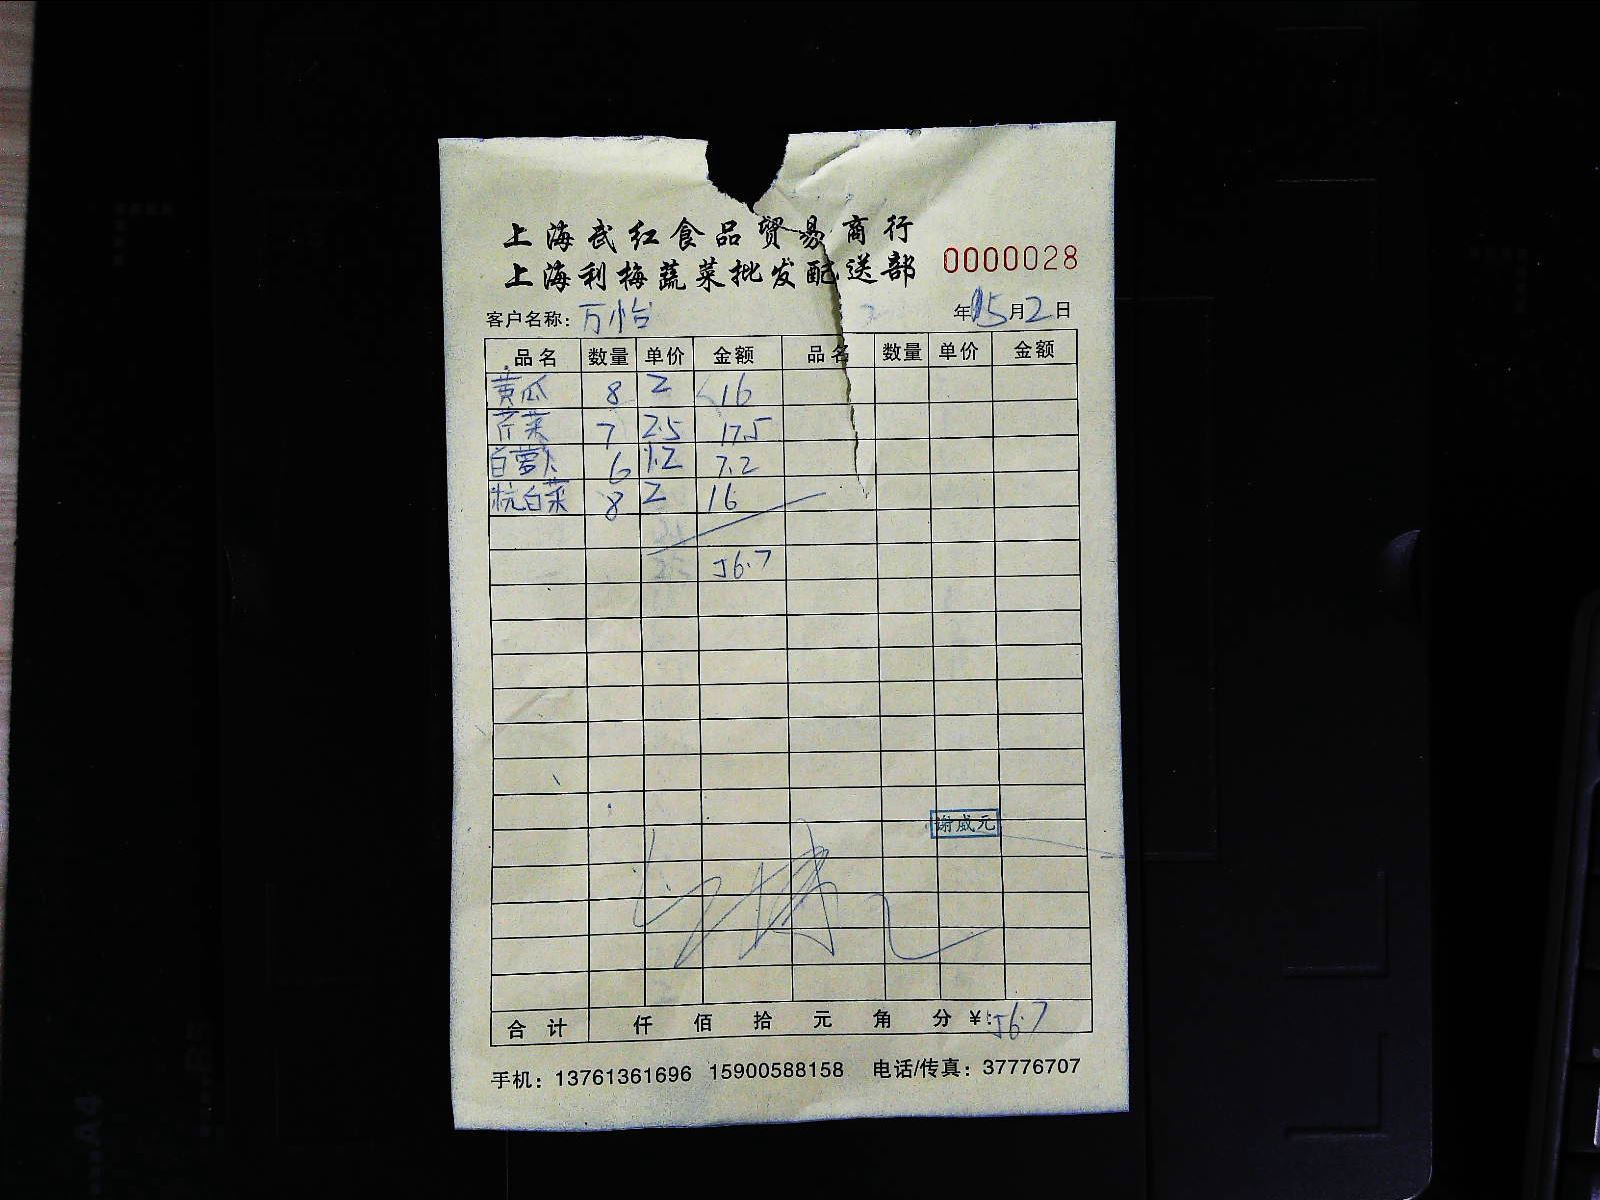 上海武红食品贸易商行
上海利梅蔬菜批发配送部 0000028
客户名称：万怡 年 5月2日
品名 数量 单价 金额 品名 数量 单价 金额
黄瓜 8 2 16
芹菜 7 2.5 17.5
白萝卜 6 1.2 7.2
杭白菜 8 2 16
56.7
谢威元
合计 仟 佰 拾 元 角 分 ¥：56.7
手机：13761361696 15900588158 电话/传真：37776707